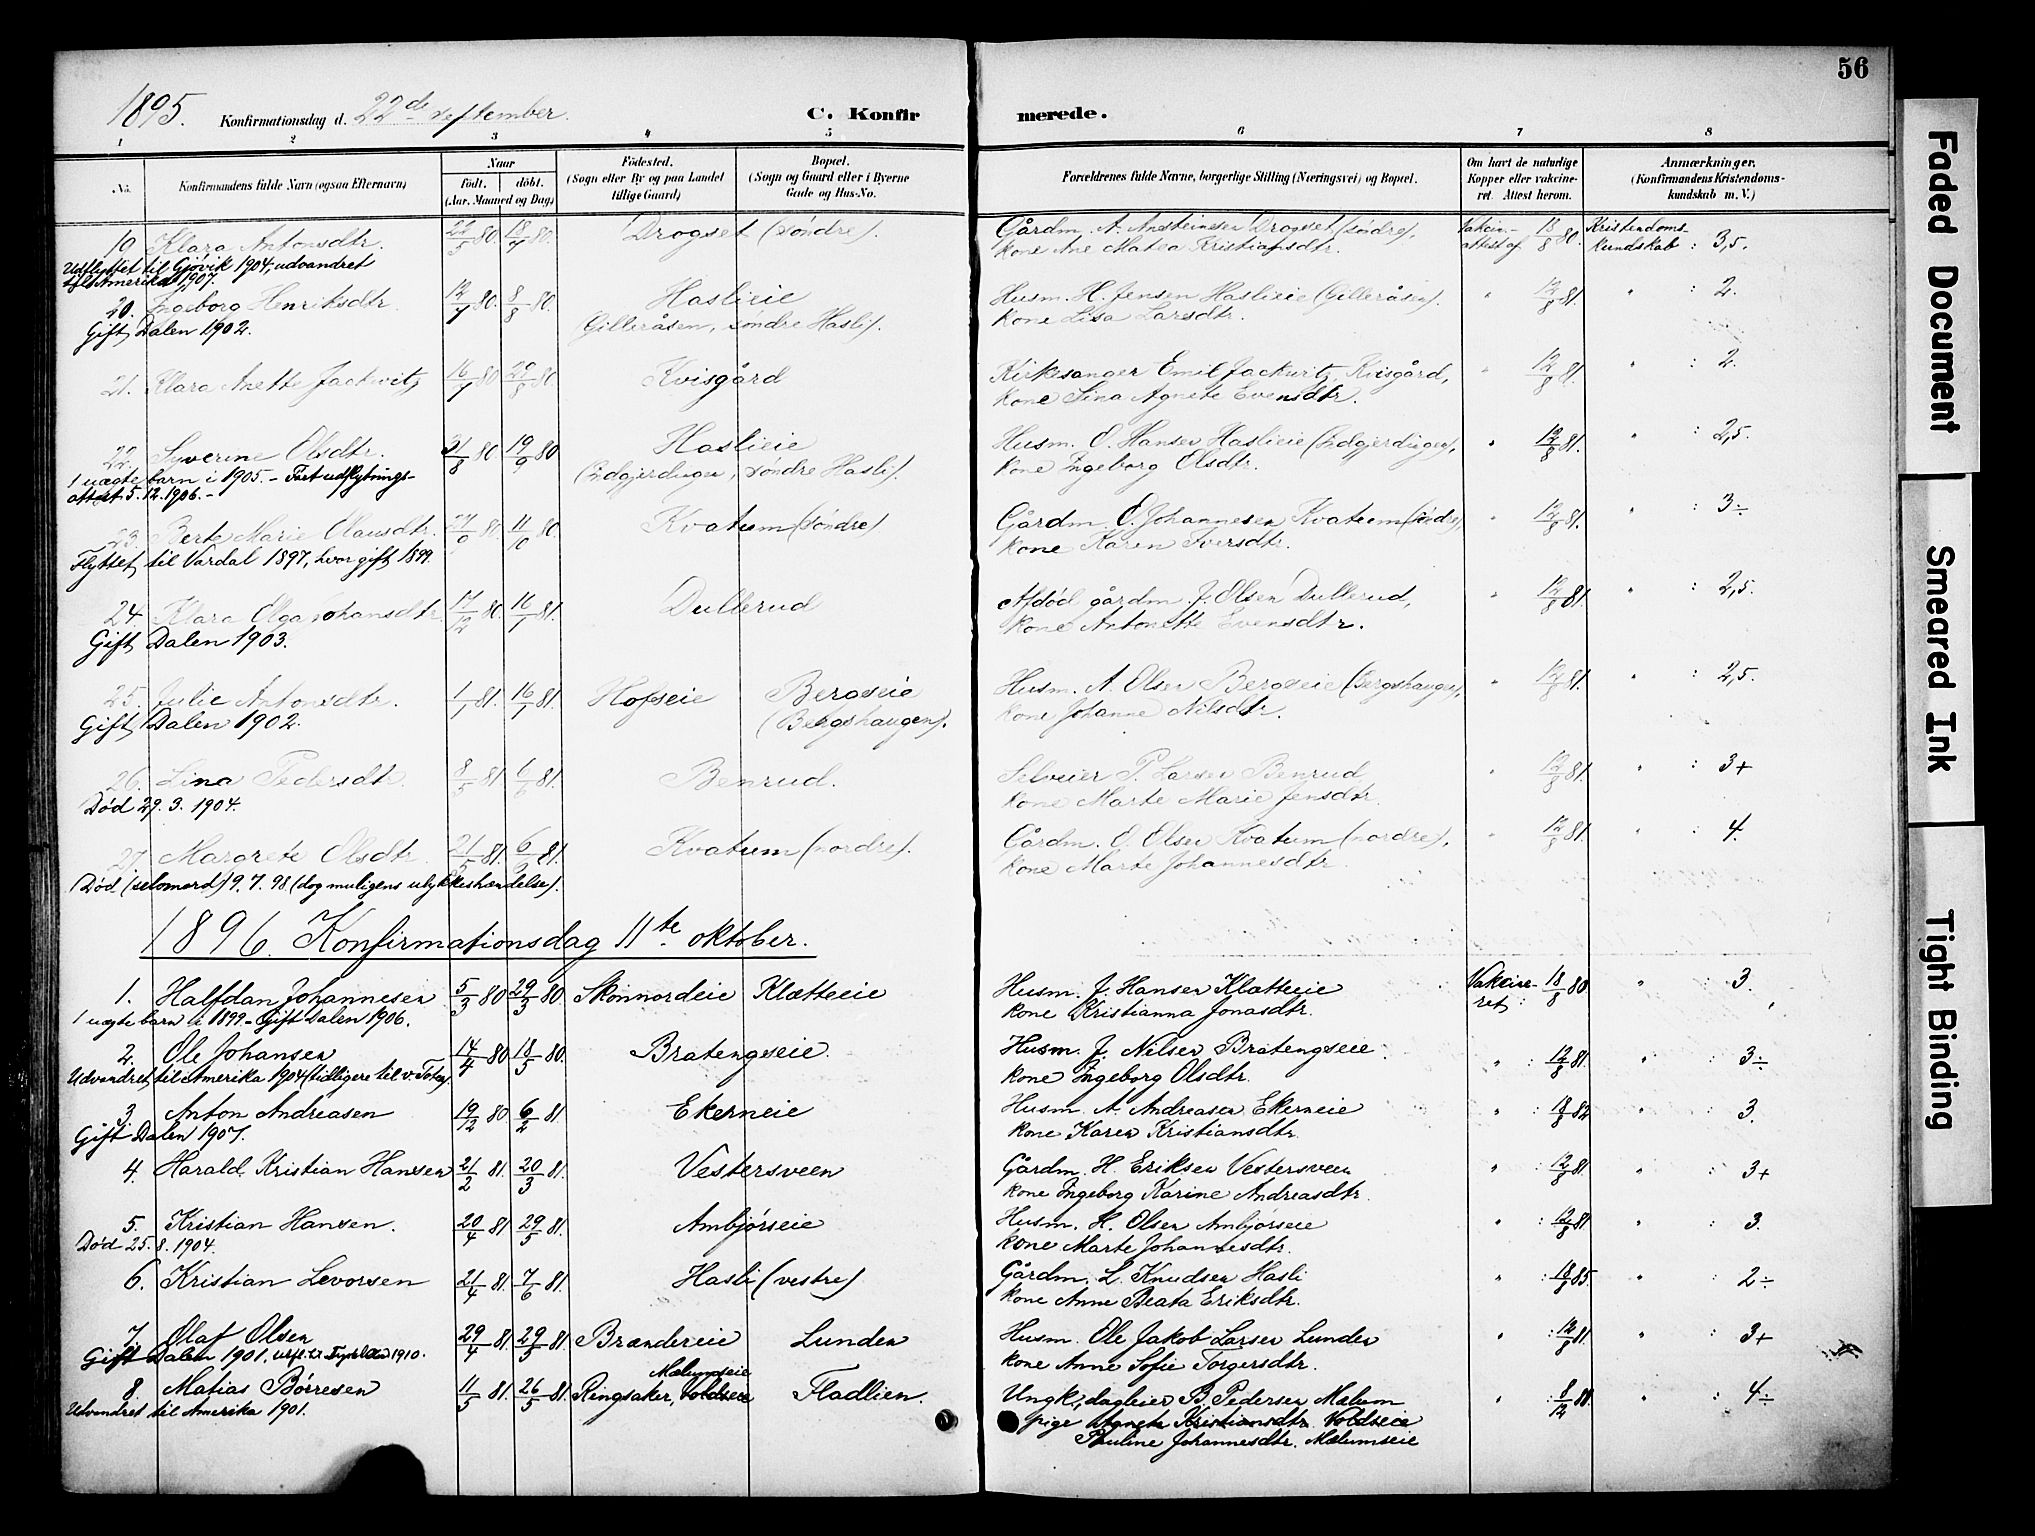 56
1895. Konfirmationsdag d. 22de september. C. Konfir merede.
1 2 3 4 5 6 7 8
No. Konfirmandens fulde Navn (ogsaa Efternavn) Naar födt. döbt. (Aar. Maaned og Dag) Födested. (Sogn eller By og paa Landet tillige Gaard) Bopæl. (Sogn og Gaard eller i Byerne Gade og Hus-No. Forældrenes fulde Navne, borgerlige Stilling (Næringsvei) og Bopæl. Om havt de naturlige Kopper eller vakcineret. Attest herom. Anmærkninger. (Konfirmandens Kristendomskundskab m. V.)
19 Klara Antonsdtr. 22/5 80. 18/7 80. Drogset (søndre). Gårdm. A. Ansteinsen Drogset (søndre), Vakcin- 18/8 80. Kristendoms-
kone Ane Matea Kristiansdtr. attest af kundskab : 3,5.
Udflyttet til Gjøvik 1904, udvandret
til Amerika 1907.
20. Ingeborg Henriksdtr. 12/7 80. 8/8 80. Haslieie Husm. H. Jensen Haslieie (Gilleråsen). " 12/8 81. " : 2.
Gift, Dalen 1902. Gilleråsen, søndre Hasli). kone Lisa Larsdtr.
21. Klara Anette Jackwitz 16/7 80 29/8 80 Kvisgård Kirkesanger Emil Jackwitz, Kvisgård, " 12/8 81. " : 2.
kone Lina Agnete Evensdtr.
22. Syverine Olsdtr. 31/8 80 19/9 80 Haslieie Husm. O. Hansen Haslieie (Lidgjerdingen), " 12/8 81. " : 2,5.
(Lidgjerdingen, søndre Hasli). kone Ingeborg Olsdtr.
1 uægte barn i 1905. - Faat udflytnings-
attest 5.12.1906. -
23. Berte Marie Olausdtr. 27/9 80. 11/10 80. Kvatum (søndre) Gårdm. O. Johannesen Kvatum (søndre), " 12/8 81. " : 3÷
Flyttet til Vardal 1897, hvor gift 1899. kone Karen Iversdtr.
24. Klara Olga Johansdtr. 17/12 80. 16/1 81. Dullerud Afdød gårdm. J. Olsen Dullerud, " 12/8 81. " : 2,5.
Gift, Dalen 1903. kone Antonette Evensdtr.
25. Julie Antonsdtr. 1/1 81. 16/1 81. Hofseie Bergseie Husm. A. Olsen Bergseie (Bergshaugen), " 12/8 81. " : 2,5.
Gift, Dalen 1902. (Bergshaugen). kone Johanne Nilsdtr.
26. Lina Pedersdtr. 8/5 81. 6/6 81. Benrud. Selveier P. Larsen Benrud, " 12/8 81. " : 3+
Død 29.3. 1904. kone Marte Marie Jensdtr.
27. Margrete Olsdtr. 21/5 81. 6/6 81. Kvatum (nordre). Gårdm. O. Olsen Kvatum (nordre), " 12/8 81. " : 4.
kone Marte Johannesdtr.
Død (selvmord) 9.7.98 (dog muligens ulykkeshændelse).
1896. Konfirmationsdag 11te oktober.
1. Halfdan Johannesen 5/3 80 29/3 80. Skonnordeie Klætteeie Husm. J. Hansen Klætteeie Vakcine- 18/8 80. " 3.
1 uægte barn i 1899. - Gift Dalen 1906. kone Kristianna Jonasdtr. ret :
2. Ole Johansen 14/4 80. 18/5 80. Bratengseie. Husm. J. Nilsen Bratengseie. " : 12/8 81. " : 3÷
Udvandret til Amerika 1904 (tidligere til v. Toten). kone Ingeborg Olsdtr.
3. Anton Andreasen 19/12 80. 6/2 81. Ekerneie Husm. A. Andreasen Ekerneie " : 18/8 82 " : 3.
Gift, Dalen 1907. kone Karen Kristiansdtr.
4. Harald Kristian Hansen 21/2 81. 20/3 81. Vestersveen Gårdm. H. Eriksen Vestersveen " : 12/8 81. " : 3+
kone Ingeborg Karine Andreasdtr.
5. Kristian Hansen. 20/4 81. 29/5 81. Ambjørseie Husm. H. Olsen Ambjørseie " : 12/8 81 " : 3.
Død 25.8.1904. kone Marte Johannesdtr.
6. Kristian Levorsen 21/4 81. 7/6 81. Hasli (vestre) Gårdm. L. Knudsen Hasli " : 18/8 85. " : 2÷
kone Anne Beata Eriksdtr.
7. Olaf Olsen 29/4 81. 29/5 81. Brændereie Lunden Husm. Ole Jakob Larsen Lunden " : 12/8 81. " : 3+
Gift Dalen 1901. 1910. kone Anne Sofie Torgersdtr.
Mælumseie
8. Matias Børresen 11/5 81. 26/5 81. Ringsaker, Voldseie Fladlien. Ungk., dagleier B. Pedersen Mælum " : 8/12 88. " : 4÷
Udvandret til Amerika 1901. pige Agnete Kristiansdtr. Voldseie
Pauline Johannesdtr. Mælumseie
Faded Document
Smeared Ink
Tight Binding